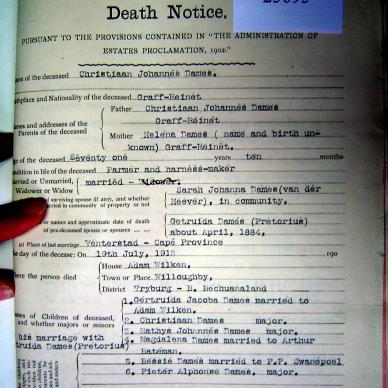 Death Notice.
PURSUANT TO THE PROVISIONS CONTAINED IN "THE ADMINISTRATION OF
ESTATES PROCLAMATION, 1902."
of the deceased Christiaan Johannes Dames.
and Nationality of the deceased Graff-Reinet
Father Christiaan Johannes Dames
Graff-Reinet
and addresses of the
Parents of the deceased
Mother Helena Dames ( name and birth un-
known) Graff-Reinet.
of the deceased Seventy one years ten months
in life of the deceased Farmer and harness-maker
Married or Unmarried,
Widower or Widow
married -
surviving spouse (if any), and whether
married in community of property or not
Sarah Johanna Dames(van der
Heever), in community,
or names and approximate date of
death of pre-deceased spouse or spouses
Getruida Dames (Pretorius)
about April, 1884,
(c) Place of last marriage Venterstad - Cape Province
The day of the decease: On 19th July, 1913 190
Where the person died
House Adam Wilken,
Town or Place Willoughby,
District Vryburg - B. Bechuanaland
Names of Children of deceased,
and whether majors or minors
1. Gertruida Jacoba Dames married to
Adam Wilken.
2. Christiaan Dames major.
3. Mathys Johannes Dames major.
his marriage with
Dames(Pretorius)
4. Magdalena Dames married to Arthur
Bateman.
5. Bessie Dames married to P.P. Swanepoel
6. Pieter Alphonse Dames. major.